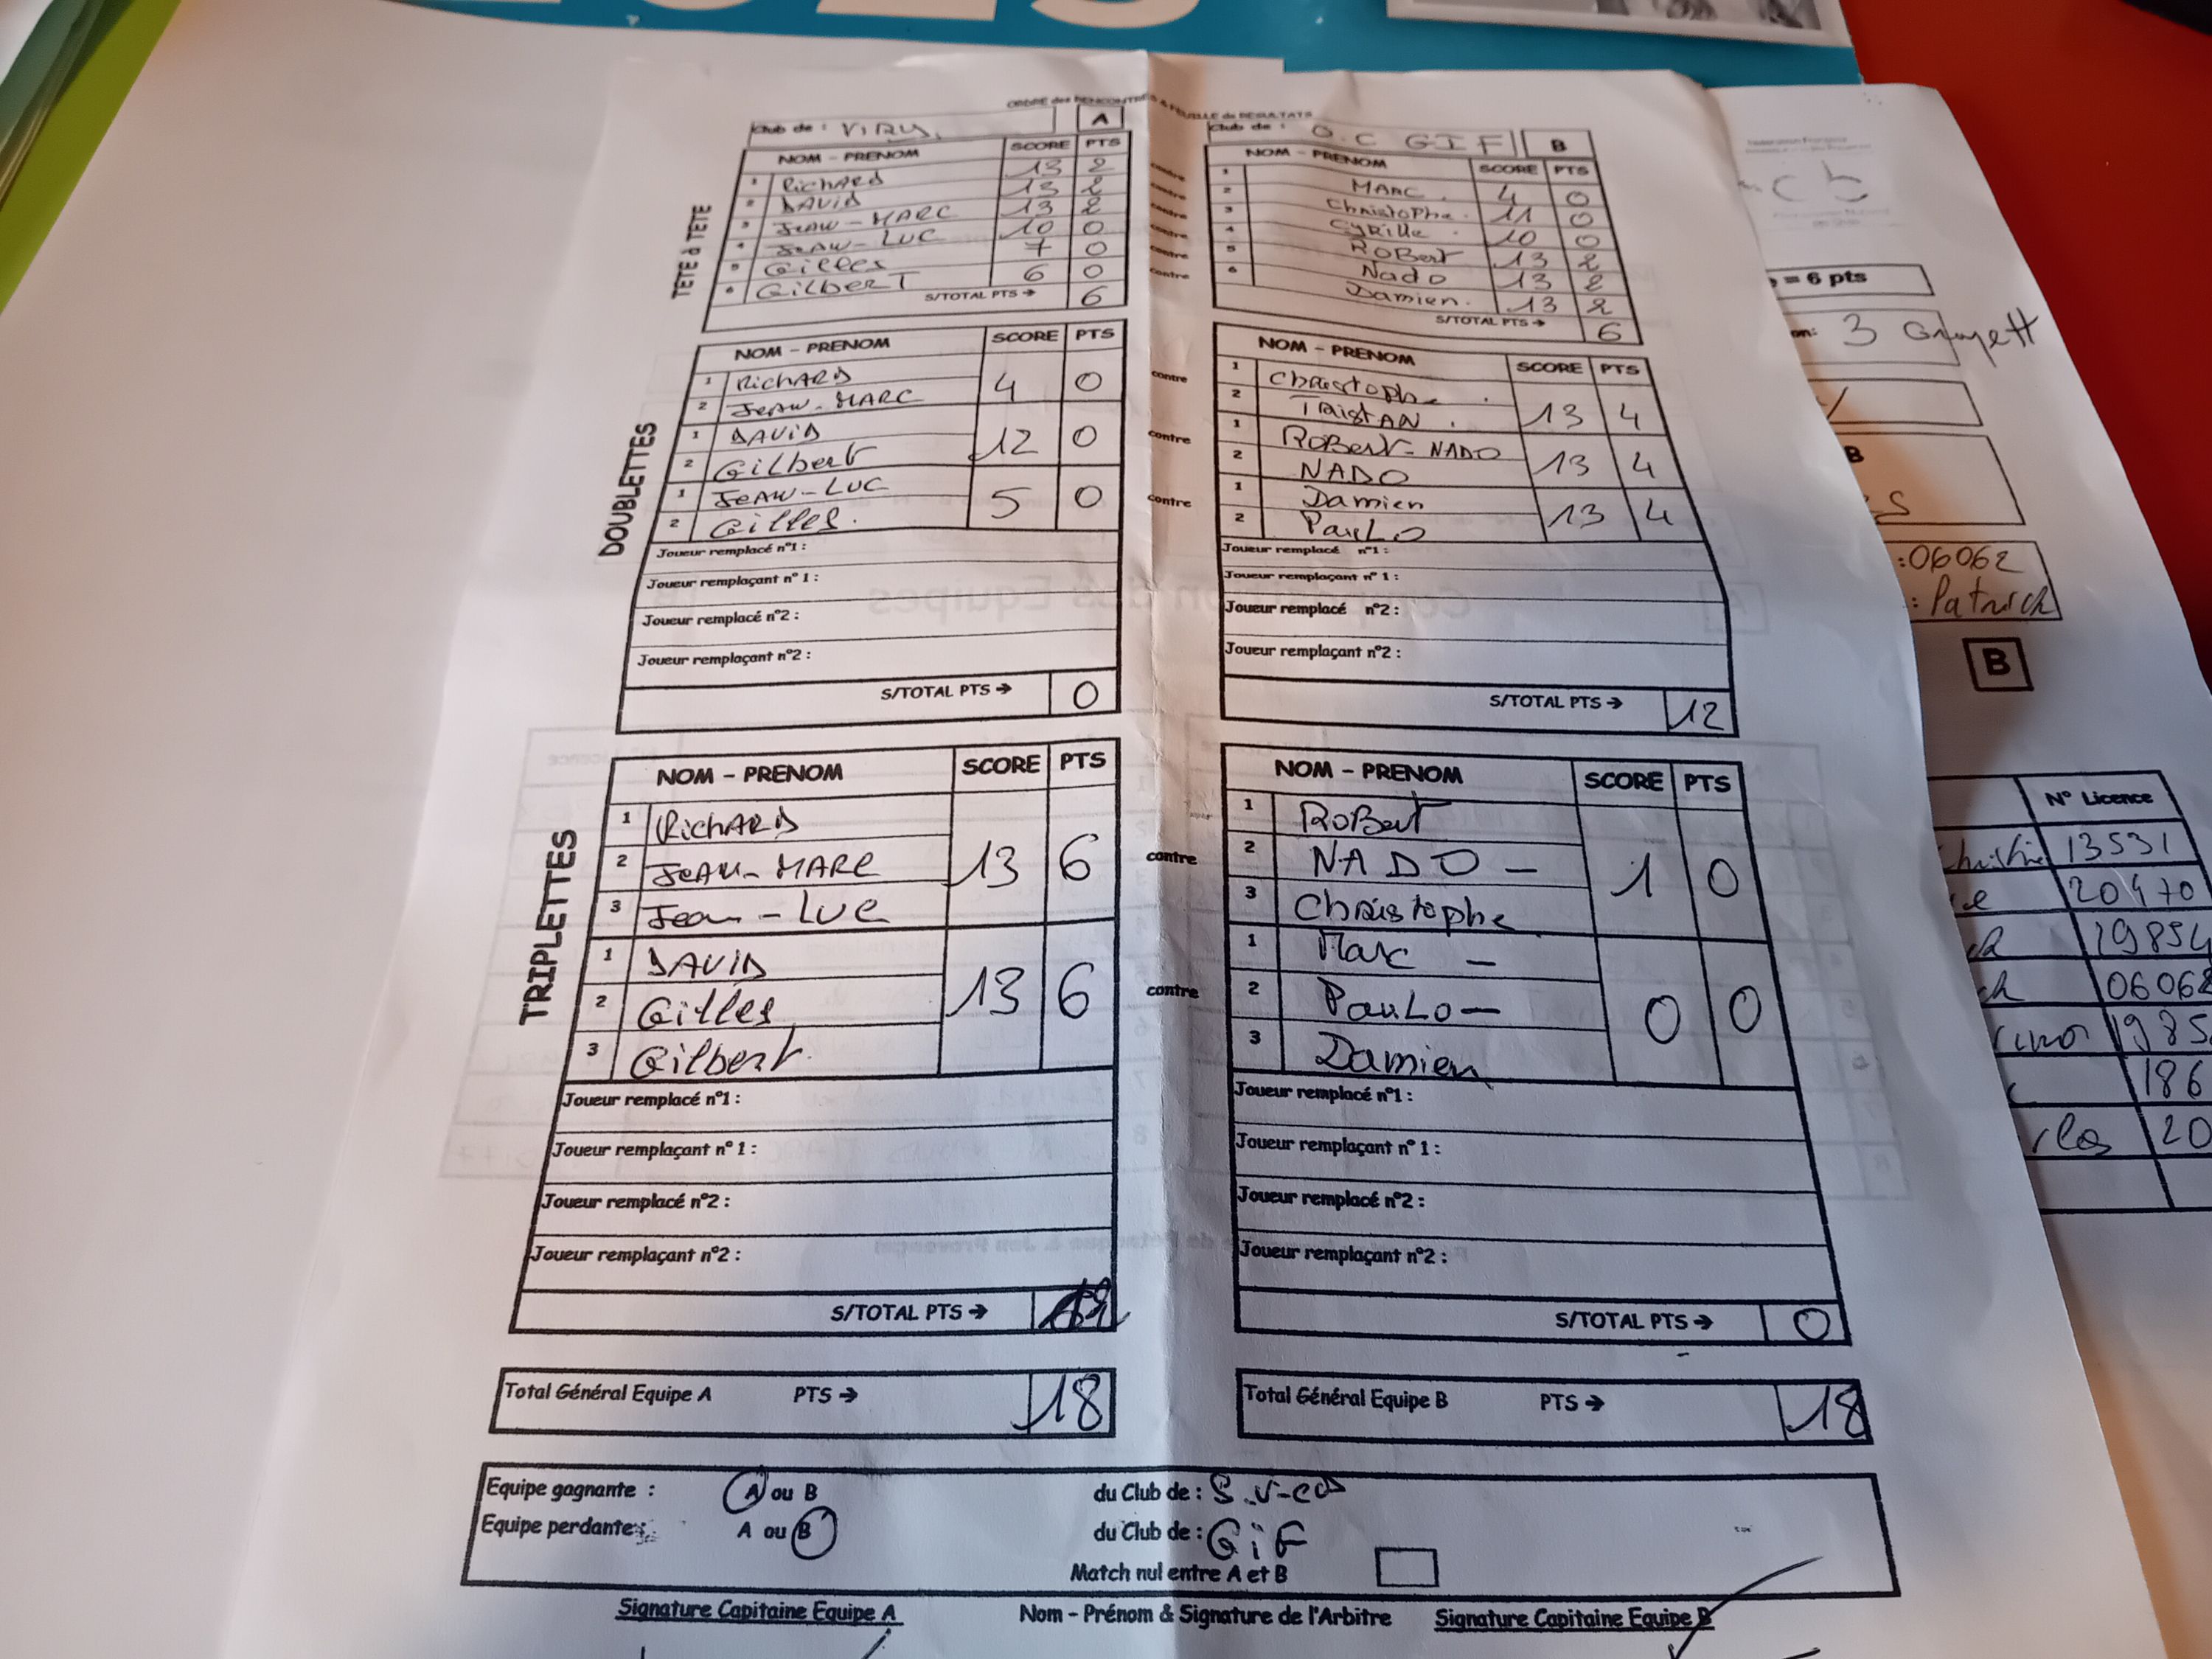 2023
ORDRE des RENCONTRES & FEUILLE de RESULTATS
Club de : VIRY. A
NOM - PRENOM SCORE PTS
TETE à TETE
1 RicHARD 13 2
2 DAVID 13 2
3 JEAN-MARC 13 2
4 JEAN-LUC 10 0
5 Gilles 7 0
6 GilberT 6 0
S/TOTAL PTS → 6
contre
contre
contre
contre
contre
contre
Club de : O.C GIF B
NOM - PRENOM SCORE PTS
1 MARC. 4 0
2 ChristoPhe. 11 0
3 CyRille. 10 0
4 ROBert 13 2
5 Nado 13 2
6 Damien. 13 2
S/TOTAL PTS → 6
DOUBLETTES
NOM - PRENOM SCORE PTS
1 RicHARD
2 JEAN-MARC
4 0
1 DAVID
2 Gilbert
12 0
1 JEAN-LUC
2 Gilles.
5 0
Joueur remplacé n°1 :
Joueur remplaçant n° 1 :
Joueur remplacé n°2 :
Joueur remplaçant n°2 :
S/TOTAL PTS → 0
contre
contre
contre
NOM - PRENOM SCORE PTS
1 Christophe.
2 TristAN.
13 4
1 RoBert-NADO
2 NADO
13 4
1 Damien
2 PauLo
13 4
Joueur remplacé n°1 :
Joueur remplaçant n° 1 :
Joueur remplacé n°2 :
Joueur remplaçant n°2 :
S/TOTAL PTS → 12
TRIPLETTES
NOM - PRENOM SCORE PTS
1 RicHARD
2 JEAN-MARC
3 Jean-Luc
13 6
1 DAVID
2 Gilles
3 Gilbert.
13 6
Joueur remplacé n°1 :
Joueur remplaçant n° 1 :
Joueur remplacé n°2 :
Joueur remplaçant n°2 :
S/TOTAL PTS →
contre
contre
NOM - PRENOM SCORE PTS
1 RoBert
2 NADO -
3 Christophe
1 0
1 Marc -
2 PauLo-
3 Damien
0 0
Joueur remplacé n°1 :
Joueur remplaçant n° 1 :
Joueur remplacé n°2 :
Joueur remplaçant n°2 :
S/TOTAL PTS → 0
Total Général Equipe A PTS → 18
Total Général Equipe B PTS → 18
Equipe gagnante : A ou B du Club de :
Equipe perdante : A ou B du Club de : GiF
Match nul entre A et B
Signature Capitaine Equipe A
Nom - Prénom & Signature de l'Arbitre
Signature Capitaine Equipe B
= 6 pts
3
B
:06062
: Patrick
B
N° Licence
13531
20470
19854
06062
1985
186
20